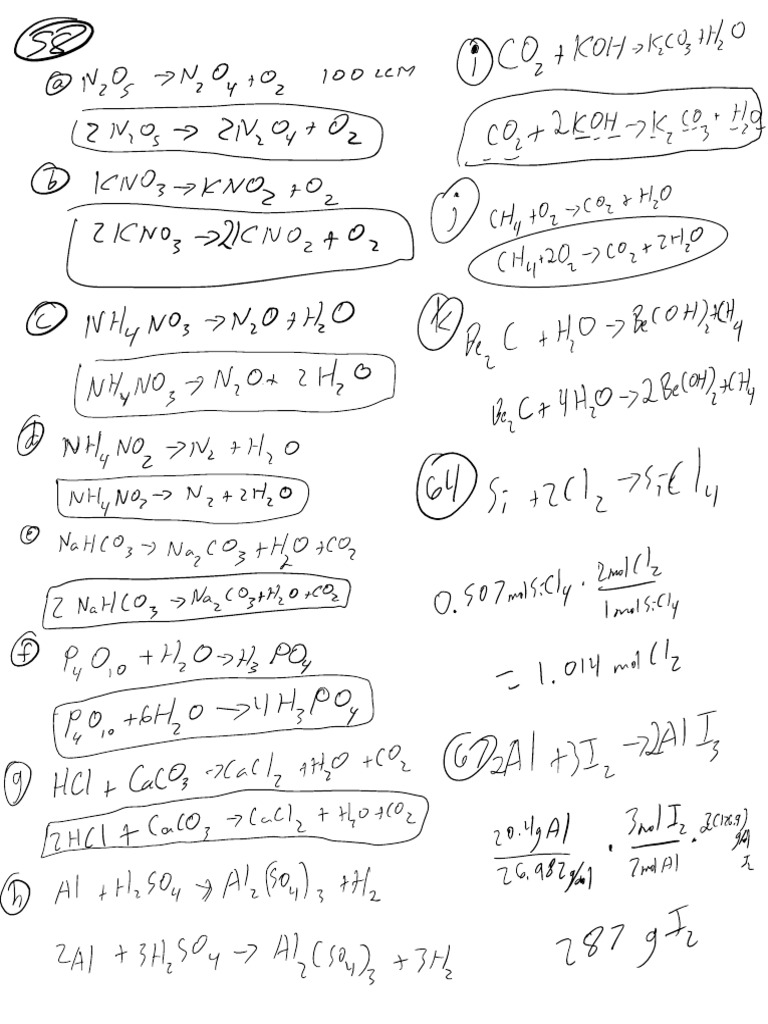 58
a N₂O₅ → N₂O₄ + O₂ 100 LCM
2 N₂O₅ → 2N₂O₄ + O₂
b KNO₃ → KNO₂ + O₂
2KNO₃ → 2KNO₂ + O₂
c NH₄NO₃ → N₂O + H₂O
NH₄NO₃ → N₂O + 2H₂O
d NH₄NO₂ → N₂ + H₂O
NH₄NO₂ → N₂ + 2H₂O
e NaHCO₃ → Na₂CO₃ + H₂O + CO₂
2 NaHCO₃ → Na₂CO₃ + H₂O + CO₂
f P₄O₁₀ + H₂O → H₃PO₄
P₄O₁₀ + 6H₂O → 4H₃PO₄
g HCl + CaCO₃ → CaCl₂ + H₂O + CO₂
2HCl + CaCO₃ → CaCl₂ + H₂O + CO₂
h Al + H₂SO₄ → Al₂(SO₄)₃ + H₂
2Al + 3H₂SO₄ → Al₂(SO₄)₃ + 3H₂
i CO₂ + KOH → K₂CO₃ + H₂O
CO₂ + 2KOH → K₂CO₃ + H₂O
j CH₄ + O₂ → CO₂ + H₂O
CH₄ + 2O₂ → CO₂ + 2H₂O
k Be₂C + H₂O → Be(OH)₂ + CH₄
Be₂C + 4H₂O → 2Be(OH)₂ + CH₄
64 Si + 2Cl₂ → SiCl₄
0.507 mol SiCl₄ · 2 mol Cl₂
1 mol SiCl₄
= 1.014 mol Cl₂
67 2Al + 3I₂ → 2AlI₃
20.4g Al · 3 mol I₂ · 2(126.9)
26.982 g/mol 2 mol Al g/mol
I₂
287 g I₂